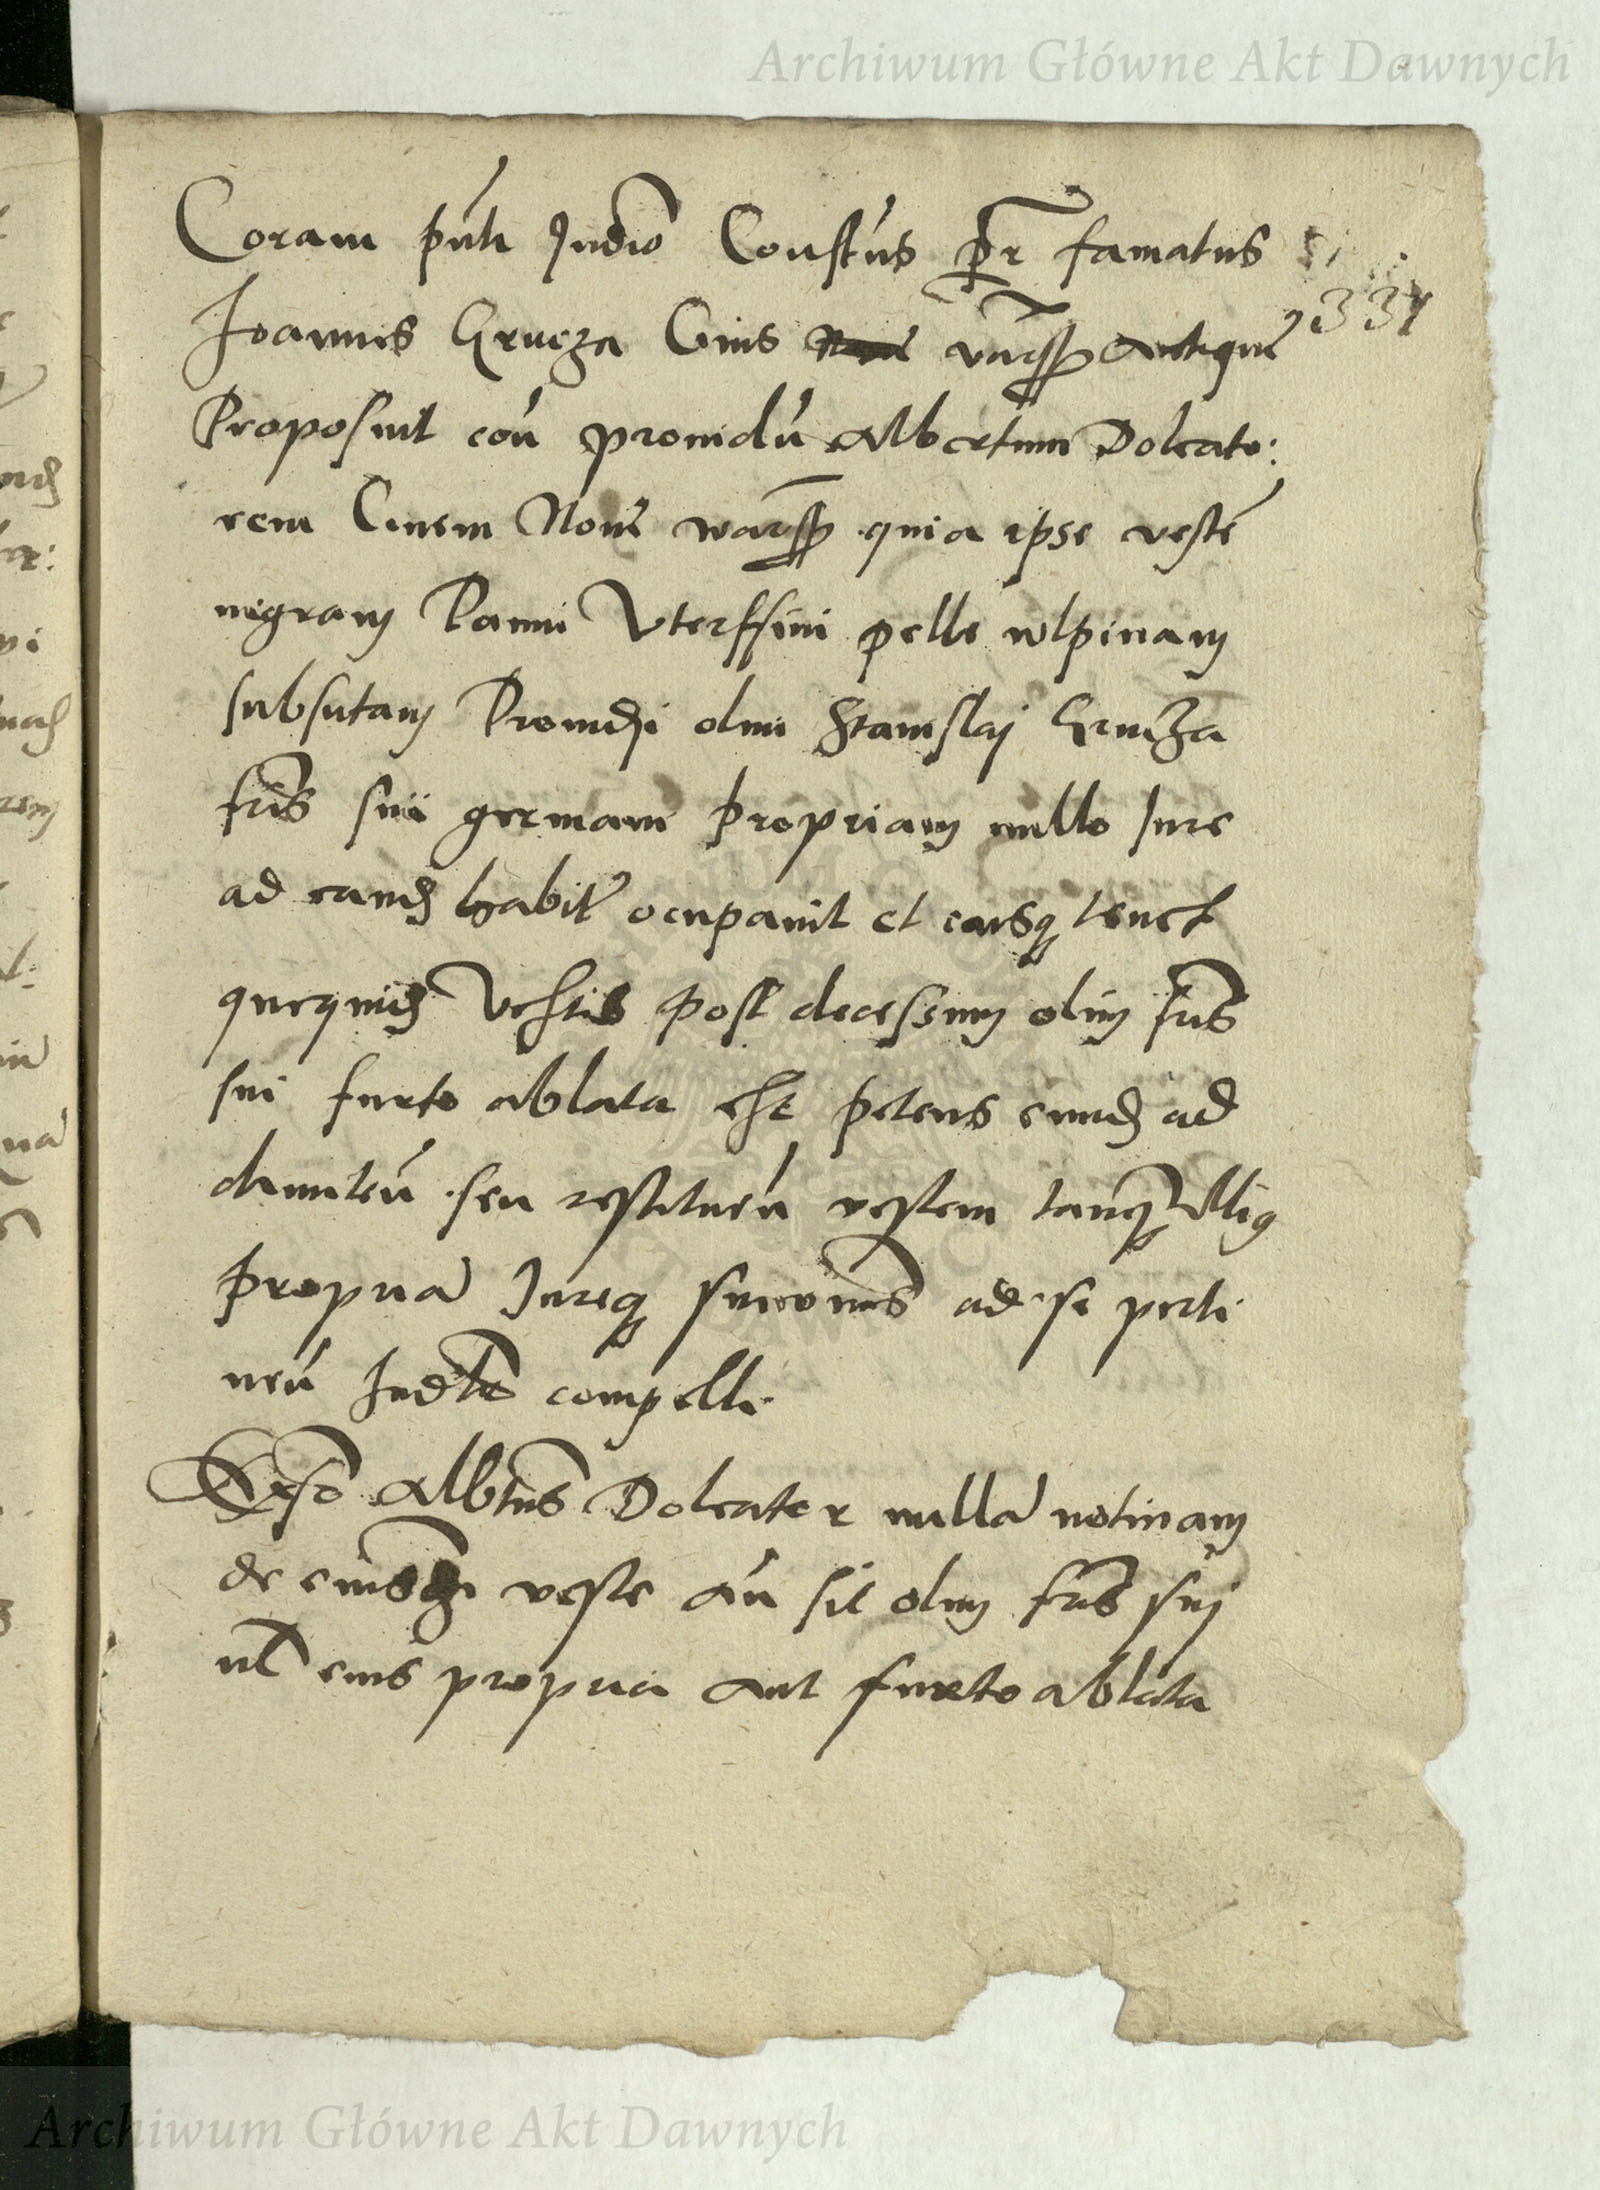 Archiwum Główne Akt Dawnych
Coram pn̄ti Judicio Constūs pr famatus
337
Joannes Grucza Civis antique
Proposuit con̄ providū Albertum Doleato:
rem Civem Nove warss quia ipse vestē
nigram Panni Vterffini pelle wlpinam
subsutam Providi olim Stanislaj Grucza
fris sui germani propriam nullo Jure
ad eand habito ocupavit et eamq tenet
quequid Vestis post decessum olim fris
sui furto ablata est petens eund ad
dimitten̄ seu restituen̄ vestem tanq illiq
propria Jureq ad se perti
nen̄ Judte compelli
Albtus Doleator nulla noticiam
de eiusdi veste an̄ sit olim fris suj
vl eius propria aut furto ablata
Archiwum Główne Akt Dawnych